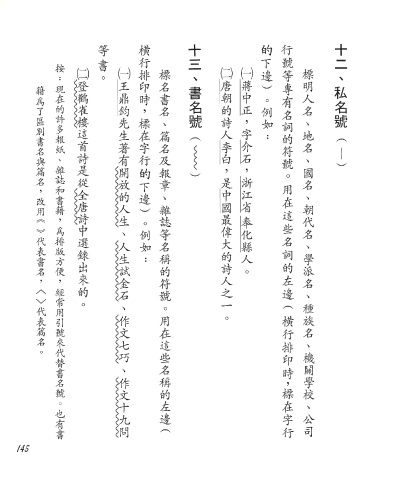 十二、私名號（——）
標明人名、地名、國名、朝代名、學派名、種族名、機關學校、公司
行號等專有名詞的符號。用在這些名詞的左邊（橫行排印時，標在字行
的下邊）。例如：
㈠蔣中正，字介石，浙江省奉化縣人。
㈡唐朝的詩人李白，是中國最偉大的詩人之一。
十三、書名號（﹏﹏）
標名書名、篇名及報章、雜誌等名稱的符號。用在這些名稱的左邊（
橫行排印時，標在字行的下邊）。例如：
㈠王鼎鈞先生著有開放的人生、人生試金石、作文七巧、作文十九問
等書。
㈡登鸛雀樓這首詩是從全唐詩中選錄出來的。
按：現在的許多報紙、雜誌和書籍，為排版方便，經常用引號來代替書名號。也有書
籍為了區別書名與篇名，改用《》代表書名，〈〉代表篇名。
145